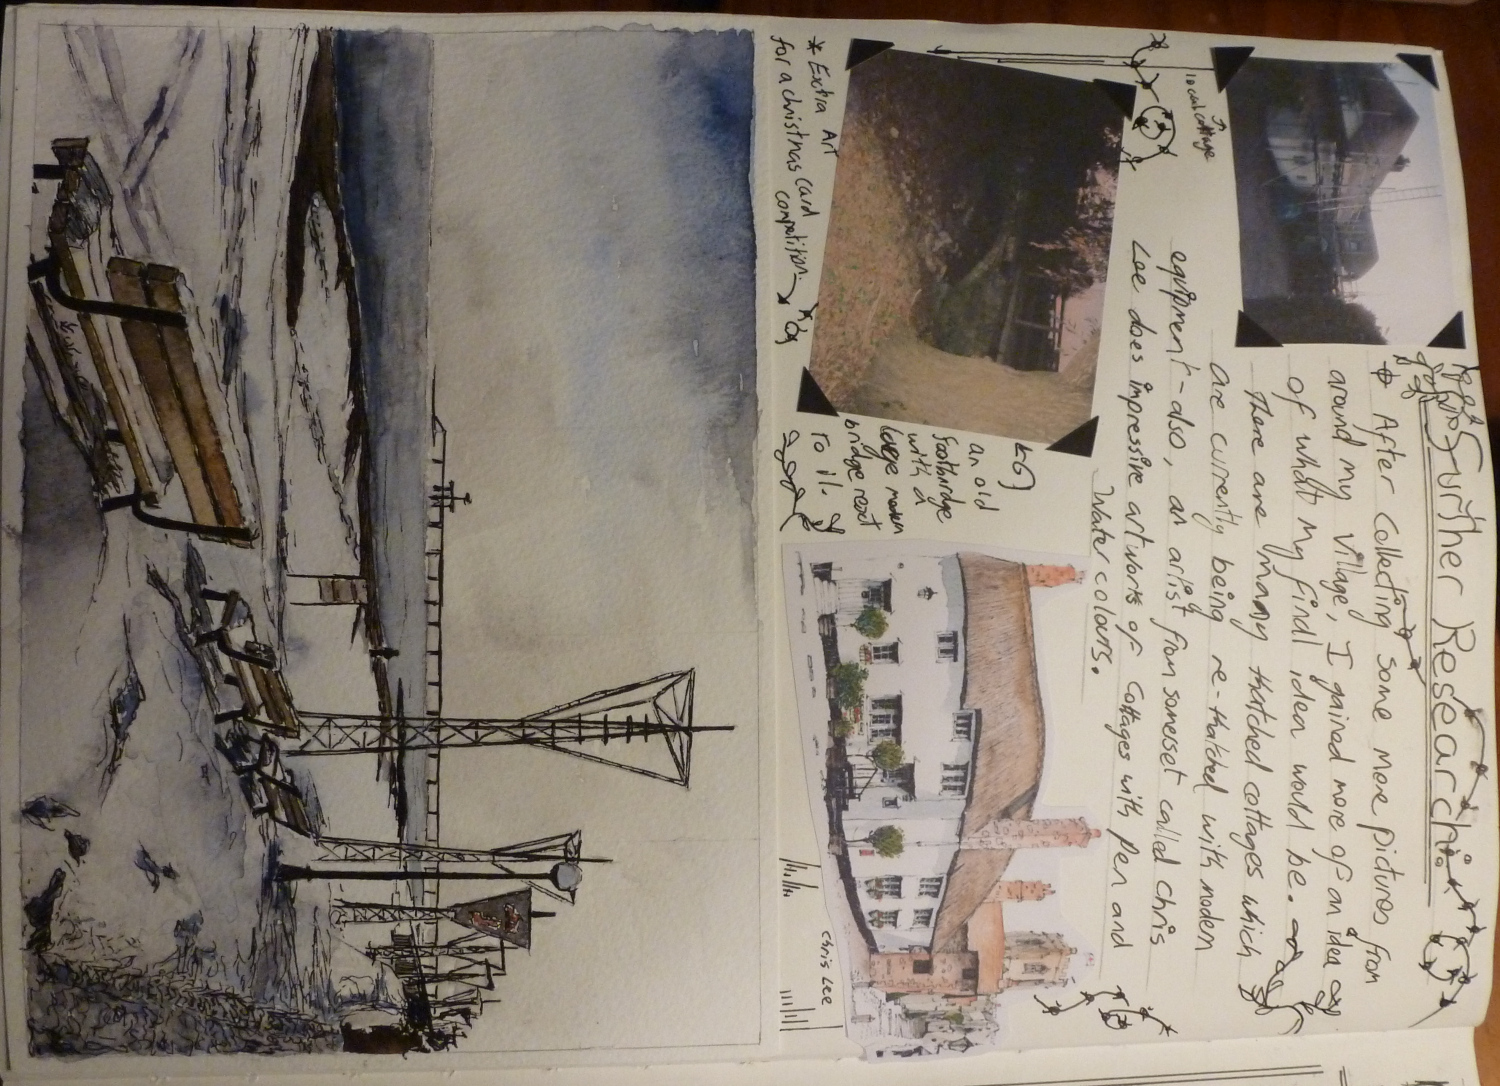 Further Research:
After Collecting some more pictures from
around my Village, I gained more of an idea
of what my final idea would be.
There are many thatched cottages which
are currently being re-thatched with modern
equipment - also, an artist from somerset called Chris
Lee does impressive artworks of Cottages with Pen and
Water colours.
local cottage
an old
footbridge
with a
large modern
bridge next
to it.
Chris Lee
* Extra Art
for a christmas Card
competition.